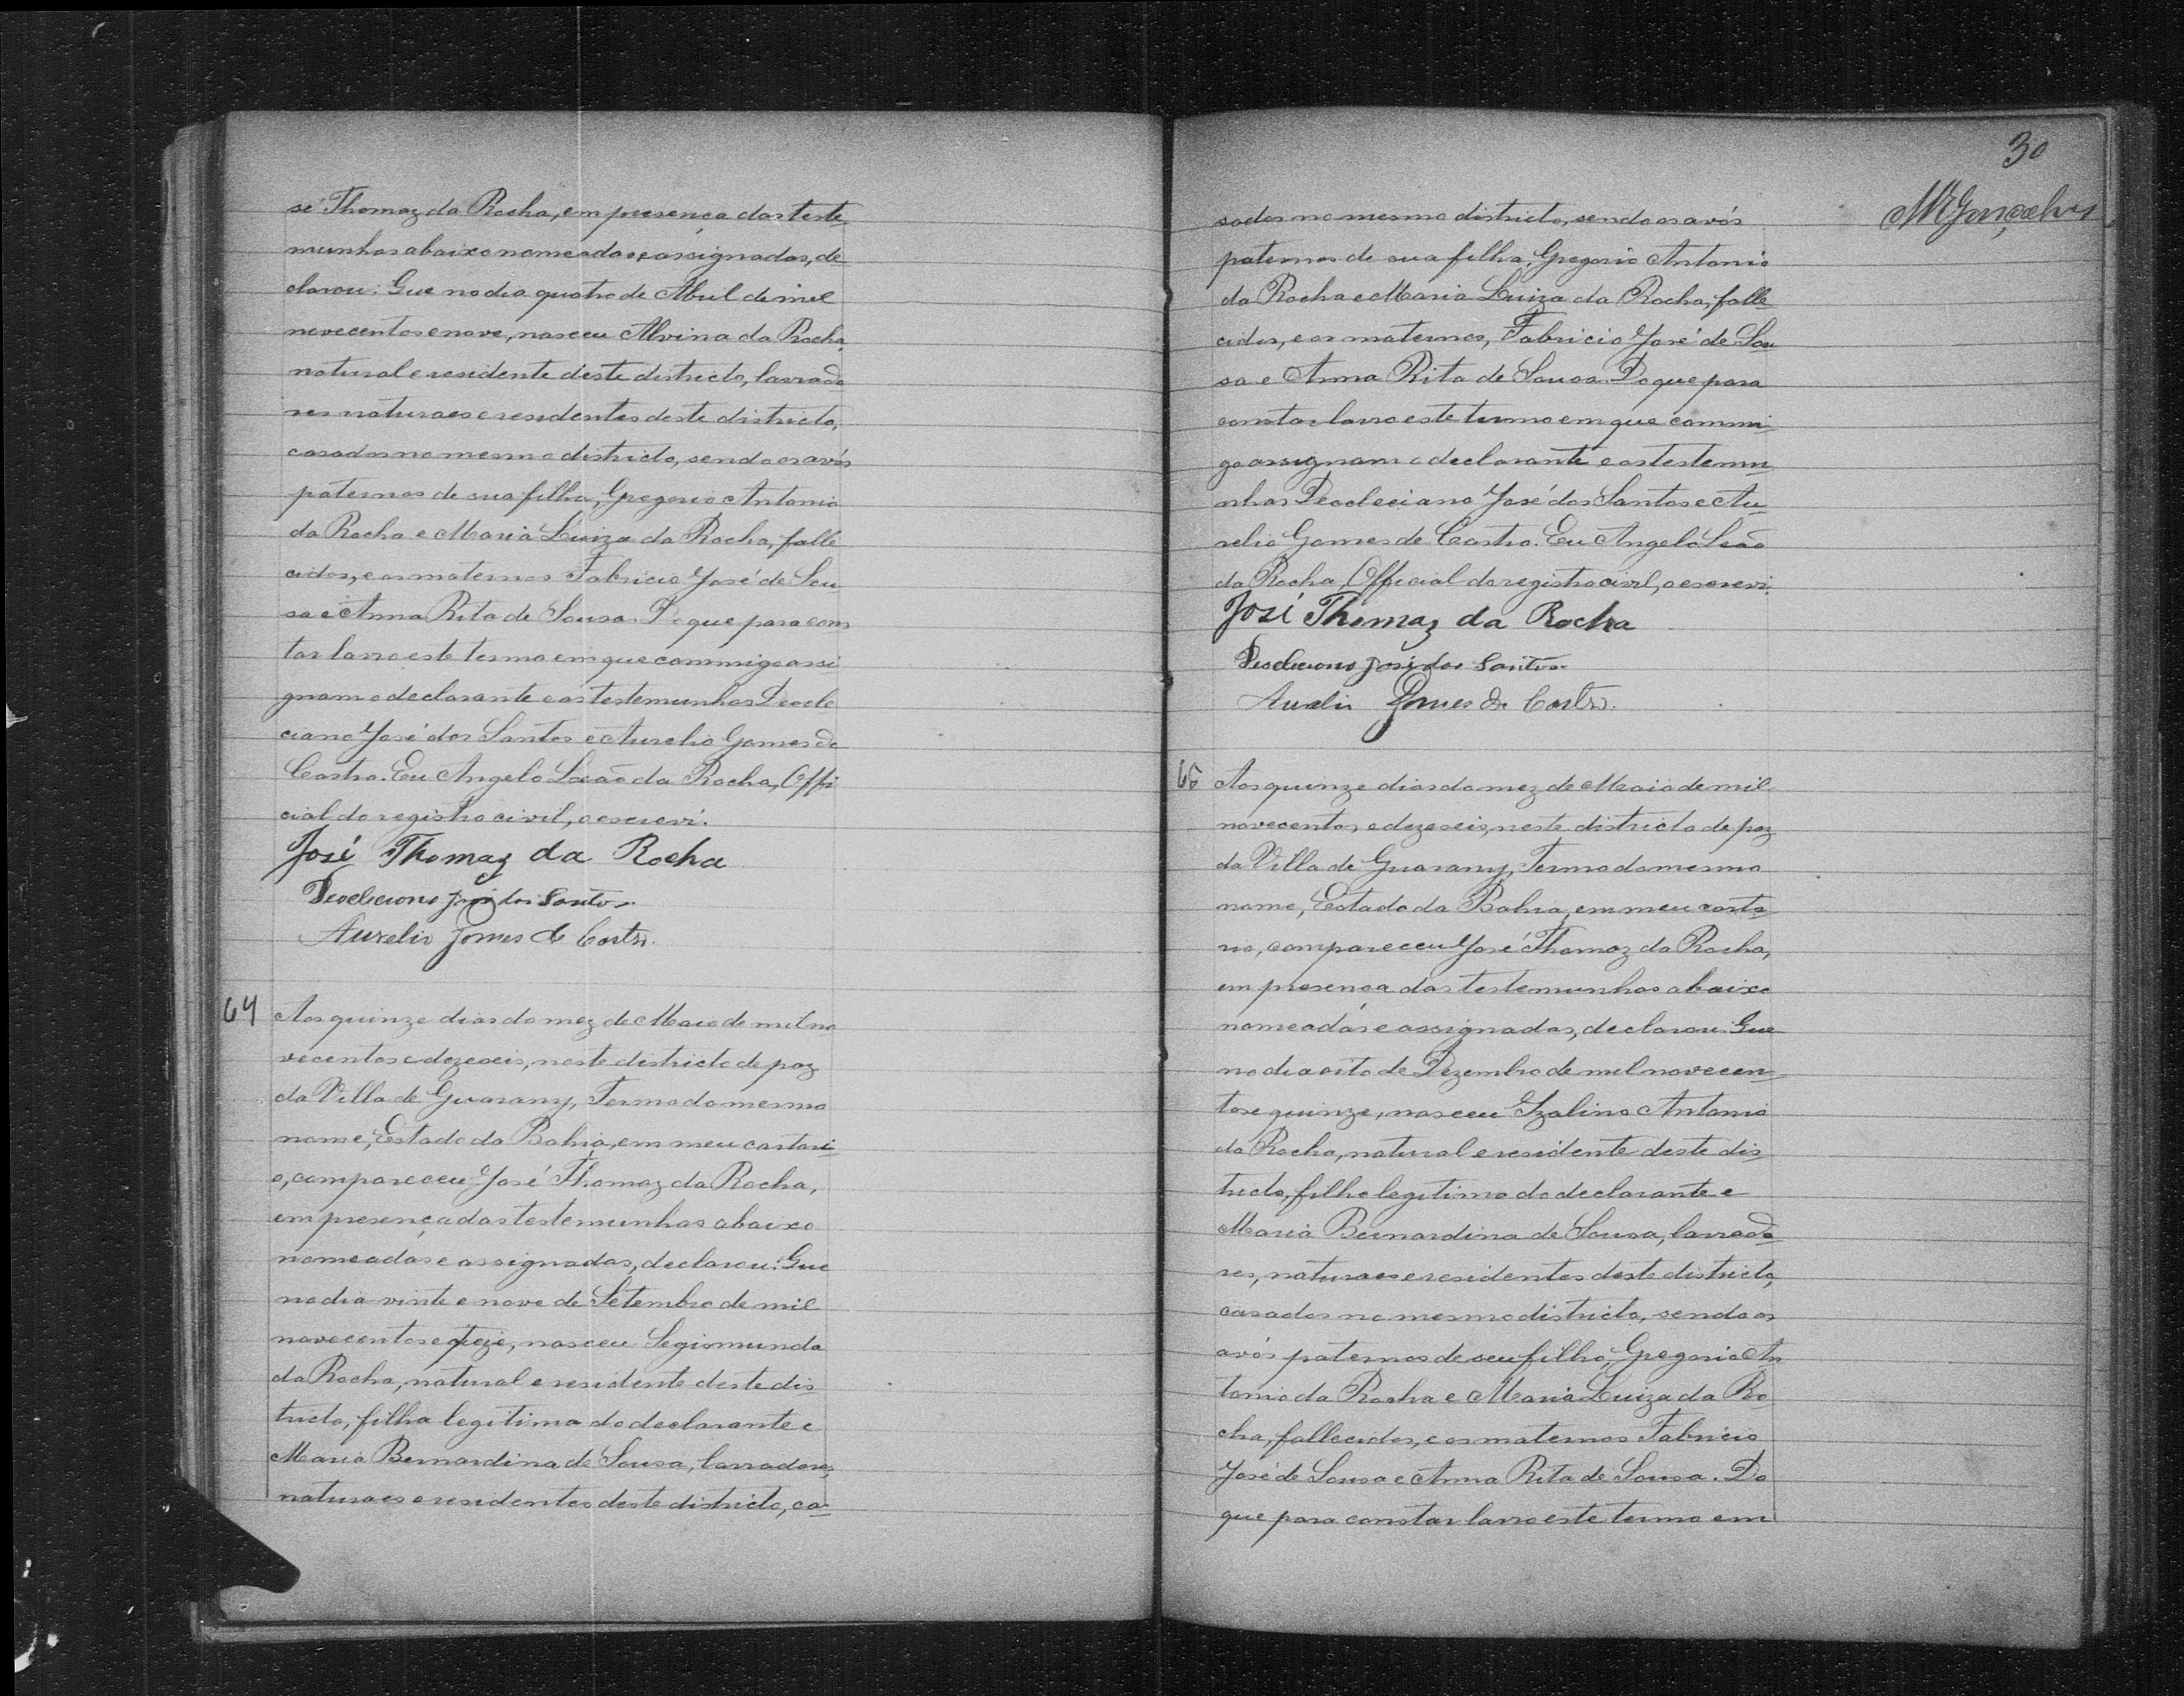 sé Thomaz da Rocha, em presença das teste
munhas abaixo nomeadas e assignadas, de
clarou: Que no dia quatro de Abril de mil
novecentos e nove, nasceu Alvina da Rocha,
natural e residente deste districto, lavrado
res naturaes e residentes deste districto,
casados no mesmo districto, sendo os avós
paternos de sua filha, Gregorio Antonio
da Rocha e Maria Luiza da Rocha, falle
cidos, e os maternos Fabricio José de Sou
sa e Anna Rita de Sousa. Do que para cons
tar lavro este termo em que commigo assi
gnam o declarante e as testemunhas Deocle
ciano José dos Santos e Aurelio Gomes de
Castro. Eu Angelo Leão da Rocha, Offi
cial do registro civil, o escrevi.
José Thomaz da Rocha
Deocleciano José dos Santos.
Aurelio Gomes de Castro.
64 Aos quinze dias do mez de Maio de mil no
vecentos e dezeseis, neste districto de paz
da Villa de Guarany, Termo do mesmo
nome, Estado da Bahia, em meu cartori-
o, compareceu José Thomaz da Rocha,
em presença das testemunhas abaixo
nomeadas e assignadas, declarou: Que
no dia vinte e nove de Setembro de mil
novecentos e treze, nasceu Segismunda
da Rocha, natural e residente deste dis
tricto, filha legitima do declarante e
Maria Bernardina de Sousa, lavradores,
naturaes e residentes deste districto, ca-
30
MRGonçalves
sados no mesmo districto, sendo os avós
paternos de sua filha, Gregorio Antonio
da Rocha e Maria Luiza da Rocha, falle
cidos, e os maternos, Fabricio José de Sou
sa e Anna Rita de Sousa. Do que para
constar lavro este termo em que commi-
go assignam o declarante e as testemu
nhas Deocleciano José dos Santos e Au-
relio Gomes de Castro. Eu Angelo Leão
da Rocha, Official do registro civil, o escrevi.
José Thomaz da Rocha
Deocleciano José dos Santos.
Aurelio Gomes de Castro.
65 Aos quinze dias do mez de Maio de mil
novecentos e dezeseis, neste districto de paz
da Villa de Guarany, Termo do mesmo
nome, Estado da Bahia, em meu carto-
rio, compareceu José Thomaz da Rocha,
em presença das testemunhas abaixo
nomeadas e assignadas, declarou: Que
no dia oito de Dezembro de mil novecen-
tos e quinze, nasceu Izalino Antonio
da Rocha, natural e residente deste dis
tricto, filho legitimo do declarante e
Maria Bernardina de Sousa, lavrado
res, naturaes e residentes deste districto,
casados no mesmo districto, sendo os
avós paternos de seu filho, Gregorio An
tonio da Rocha e Maria Luiza da Ro-
cha, fallecidos, e os maternos Fabricio
José de Sousa e Anna Rita de Sousa. Do
que para constar lavro este termo em